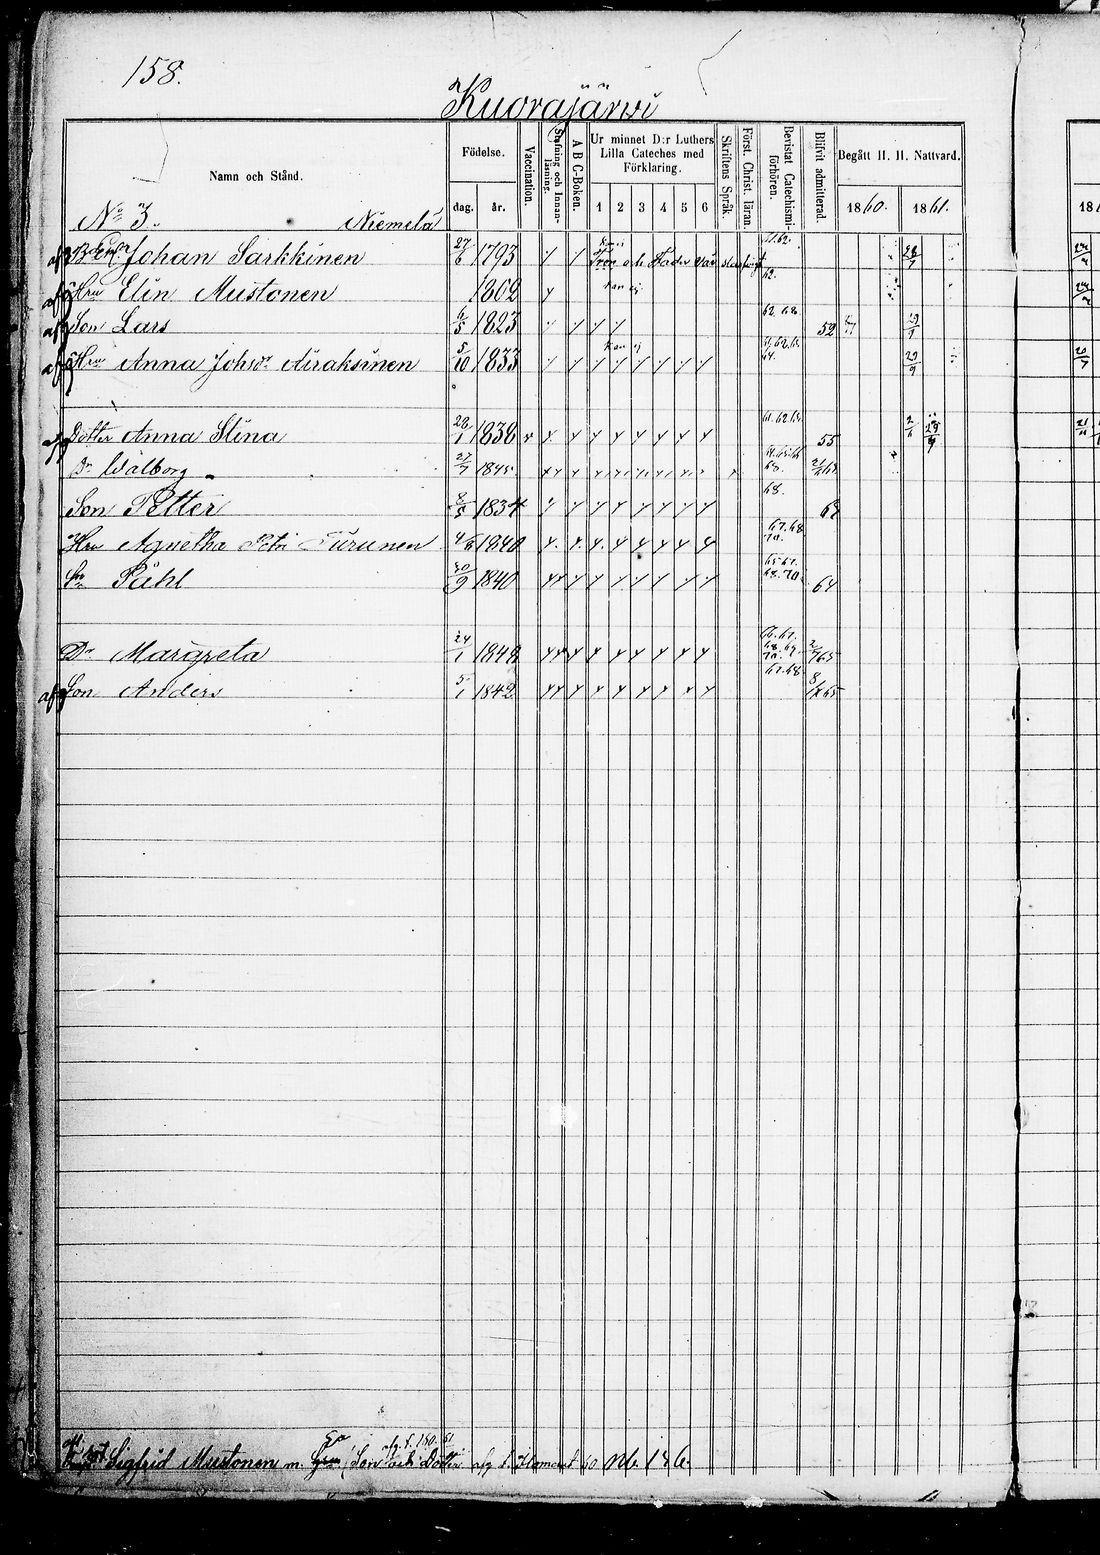 158.
Kuorajärwi
Namn och Stånd.
Födelse.
dag. år.
Vaccination.
Stafning och Innan-läsning.
A B C-Boken.
Ur minnet D:r Luthers Lilla Cateches med Förklaring.
1 2 3 4 5 6
Skriftens Språk.
Först. Christ. läran.
Bevistat Catechismi-förhören.
Blifvit admitterad.
Begått H. H. Nattvard.
1860. 1861.
No 3. Niemelä
Johan Sarkkinen 27/6 1793 Tron och Fader vår
Hru Elin Mustonen 1802 kan ej 62.
Son Lars 6/5 1823 62. 68. 52
Hru Anna Johsdr Airaksinen 5/10 1833 kan ej 29/9
Dotter Anna Stina 28/1 1838 61.62.65. 55
Dr Walborg 27/7 1845
Son Petter 8/5 1834 68.
Hru Agnetha Petri Turunen 4/8 1840 67.68. 70.
Sn Påhl 30/9 1840 65 67. 68.70. 64
Dr Margreta 24/1 1848 66.67. 68.69. 70. 2/7 65
Son Anders 5/1 1842 67.68. 65
afg. t. 180. 61
Sigfrid Mustonen m. Son och Dotter afg t. 60 186.